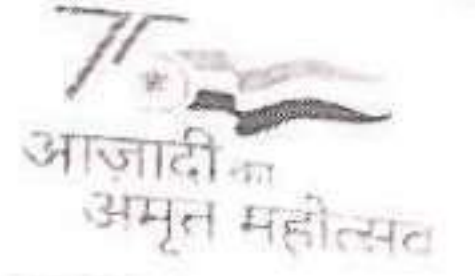 आज़ादी का
अमृत महोत्सव